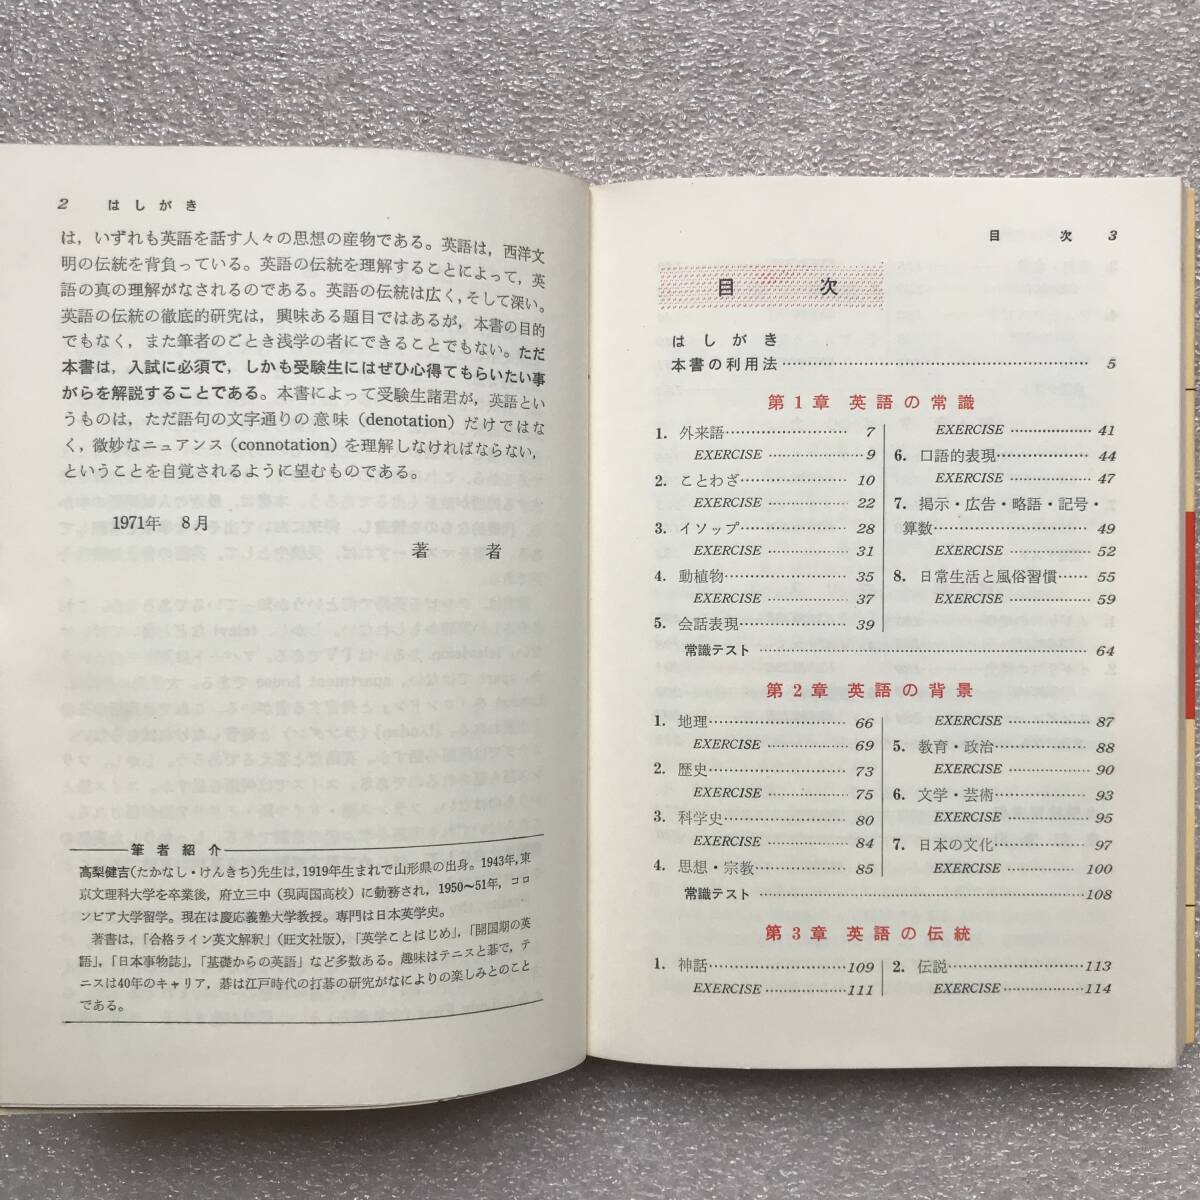 2 はしがき
は，いずれも英語を話す人々の思想の産物である。英語は，西洋文
明の伝統を背負っている。英語の伝統を理解することによって，英
語の真の理解がなされるのである。英語の伝統は広く，そして深い。
英語の伝統の徹底的研究は，興味ある題目ではあるが，本書の目的
でもなく，また筆者のごとき浅学の者にできることでもない。ただ
本書は，入試に必須で，しかも受験生にはぜひ心得てもらいたい事
がらを解説することである。本書によって受験生諸君が，英語とい
うものは，ただ語句の文字通りの意味（denotation）だけではな
く，微妙なニュアンス（connotation）を理解しなければならない，
ということを自覚されるように望むものである。
1971年 8月
著 者
筆者紹介
高梨健吉(たかなし・けんきち)先生は，1919年生まれで山形県の出身。1943年，東
京文理科大学を卒業後，府立三中（現両国高校）に勤務され，1950～51年，コロ
ンビア大学留学。現在は慶応義塾大学教授。専門は日本英学史。
著書は，「合格ライン英文解釈」（旺文社版），「英学ことはじめ」，「開国期の英
語」，「日本事物誌」，「基礎からの英語」など多数ある。趣味はテニスと碁で，テ
ニスは40年のキャリア，碁は江戸時代の打碁の研究がなによりの楽しみとのこと
である。
目 次 3
目 次
はしがき
本書の利用法…………5
第1章 英語の常識
1. 外来語…………7
EXERCISE…………9
2. ことわざ…………10
EXERCISE…………22
3. イソップ…………28
EXERCISE…………31
4. 動植物…………35
EXERCISE…………37
5. 会話表現…………39
EXERCISE…………41
6. 口語的表現…………44
EXERCISE…………47
7. 掲示・広告・略語・記号・
算数…………49
EXERCISE…………52
8. 日常生活と風俗習慣……55
EXERCISE…………59
常識テスト…………64
第2章 英語の背景
1. 地理…………66
EXERCISE…………69
2. 歴史…………73
EXERCISE…………75
3. 科学史…………80
EXERCISE…………84
4. 思想・宗教…………85
EXERCISE…………87
5. 教育・政治…………88
EXERCISE…………90
6. 文学・芸術…………93
EXERCISE…………95
7. 日本の文化…………97
EXERCISE…………100
常識テスト…………108
第3章 英語の伝統
1. 神話…………109
EXERCISE…………111
2. 伝説…………113
EXERCISE…………114